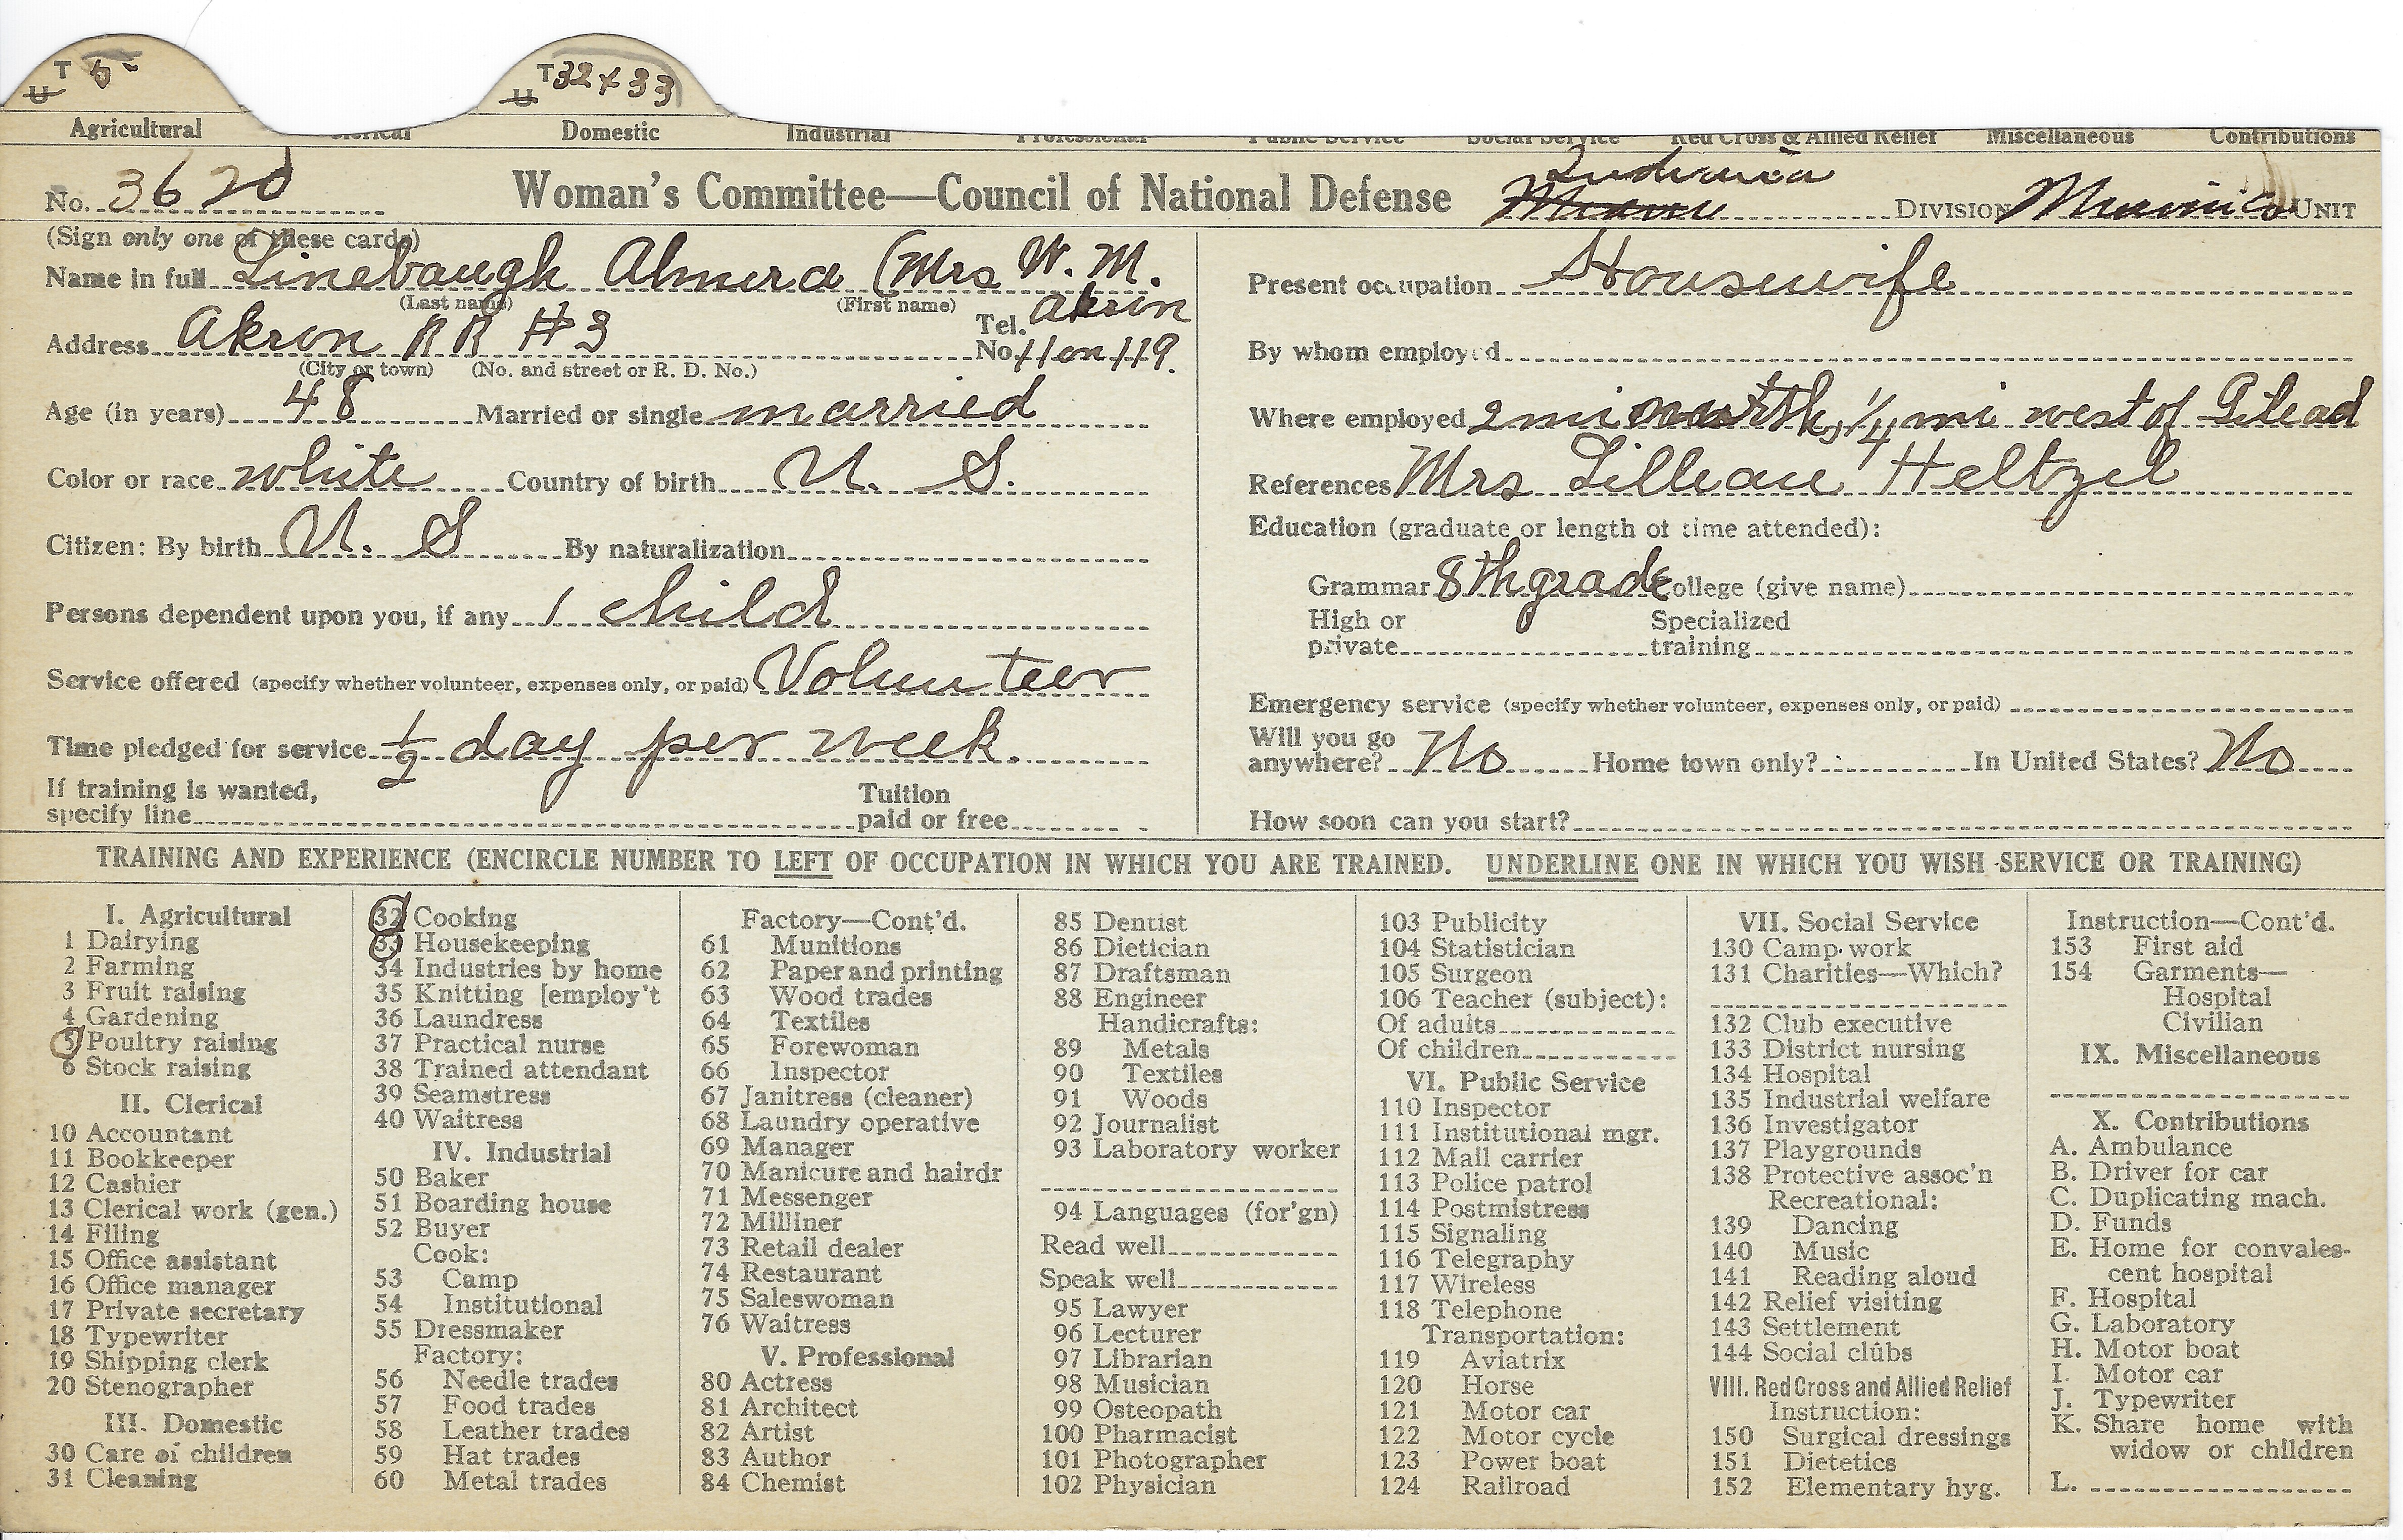 T 5
U
T 32 x 33
U
Agricultural Clerical Domestic Industrial Professional Public Service Social Service Red Cross & Allied Relief Miscellaneous Contributions
No. 3620 Woman's Committee—Council of National Defense Indiana DIVISION UNIT
(Sign only one of these cards)
Name in full Linebaugh Almira (Mrs W. M.
(Last name) (First name)
Address Akron RR #3 Tel. No. Akron 11 on 119.
(City or town) (No. and street or R. D. No.)
Age (in years) 48 Married or single married
Color or race white Country of birth U. S.
Citizen: By birth U. S By naturalization
Persons dependent upon you, if any 1 child
Service offered (specify whether volunteer, expenses only, or paid) Volunteer
Time pledged for service 1/2 day per week.
If training is wanted, specify line Tuition paid or free
Present occupation Housewife
By whom employed
Where employed 2 mi north, 1/4 mi west of Gilead
References Mrs Lillian Heltzel
Education (graduate or length of time attended):
Grammar 8th grade College (give name)
High or private Specialized training
Emergency service (specify whether volunteer, expenses only, or paid)
Will you go anywhere? No Home town only? In United States? No
How soon can you start?
TRAINING AND EXPERIENCE (ENCIRCLE NUMBER TO LEFT OF OCCUPATION IN WHICH YOU ARE TRAINED. UNDERLINE ONE IN WHICH YOU WISH SERVICE OR TRAINING)
I. Agricultural
1 Dairying
2 Farming
3 Fruit raising
4 Gardening
5 Poultry raising
6 Stock raising
II. Clerical
10 Accountant
11 Bookkeeper
12 Cashier
13 Clerical work (gen.)
14 Filing
15 Office assistant
16 Office manager
17 Private secretary
18 Typewriter
19 Shipping clerk
20 Stenographer
III. Domestic
30 Care of children
31 Cleaning
32 Cooking
33 Housekeeping
34 Industries by home
35 Knitting [employ't
36 Laundress
37 Practical nurse
38 Trained attendant
39 Seamstress
40 Waitress
IV. Industrial
50 Baker
51 Boarding house
52 Buyer
Cook:
53 Camp
54 Institutional
55 Dressmaker
Factory:
56 Needle trades
57 Food trades
58 Leather trades
59 Hat trades
60 Metal trades
Factory—Cont'd.
61 Munitions
62 Paper and printing
63 Wood trades
64 Textiles
65 Forewoman
66 Inspector
67 Janitress (cleaner)
68 Laundry operative
69 Manager
70 Manicure and hairdr
71 Messenger
72 Milliner
73 Retail dealer
74 Restaurant
75 Saleswoman
76 Waitress
V. Professional
80 Actress
81 Architect
82 Artist
83 Author
84 Chemist
85 Dentist
86 Dietician
87 Draftsman
88 Engineer
Handicrafts:
89 Metals
90 Textiles
91 Woods
92 Journalist
93 Laboratory worker
94 Languages (for'gn)
Read well
Speak well
95 Lawyer
96 Lecturer
97 Librarian
98 Musician
99 Osteopath
100 Pharmacist
101 Photographer
102 Physician
103 Publicity
104 Statistician
105 Surgeon
106 Teacher (subject):
Of adults
Of children
VI. Public Service
110 Inspector
111 Institutional mgr.
112 Mail carrier
113 Police patrol
114 Postmistress
115 Signaling
116 Telegraphy
117 Wireless
118 Telephone
Transportation:
119 Aviatrix
120 Horse
121 Motor car
122 Motor cycle
123 Power boat
124 Railroad
VII. Social Service
130 Camp work
131 Charities—Which?
132 Club executive
133 District nursing
134 Hospital
135 Industrial welfare
136 Investigator
137 Playgrounds
138 Protective assoc'n
Recreational:
139 Dancing
140 Music
141 Reading aloud
142 Relief visiting
143 Settlement
144 Social clubs
VIII. Red Cross and Allied Relief
Instruction:
150 Surgical dressings
151 Dietetics
152 Elementary hyg.
Instruction—Cont'd.
153 First aid
154 Garments—
Hospital
Civilian
IX. Miscellaneous
X. Contributions
A. Ambulance
B. Driver for car
C. Duplicating mach.
D. Funds
E. Home for convales-
cent hospital
F. Hospital
G. Laboratory
H. Motor boat
I. Motor car
J. Typewriter
K. Share home with
widow or children
L.